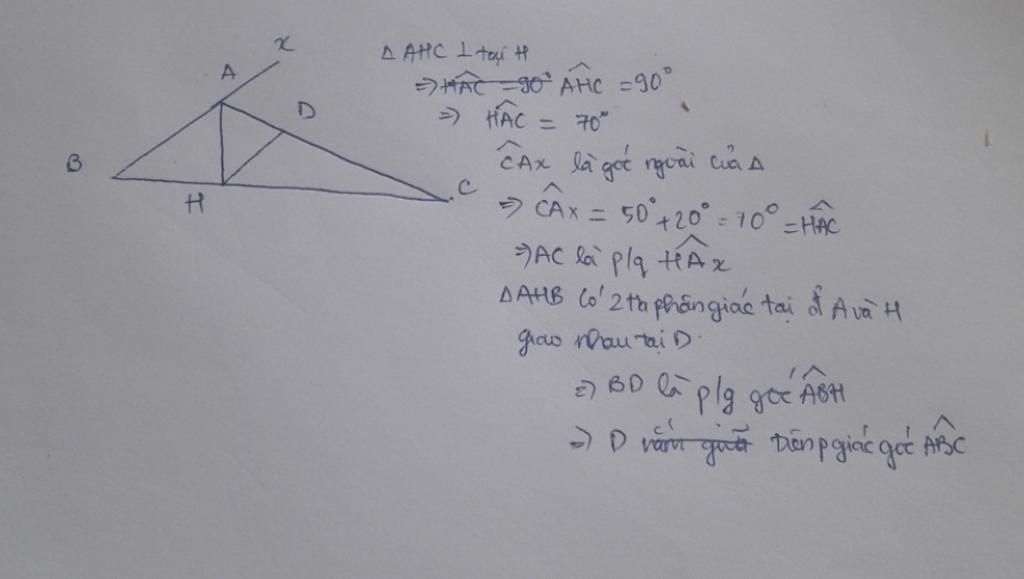 x
A
D
B
H
C
Δ AHC ⊥ tại H
⇒ HAC = 90° AHC = 90°
⇒ HAC = 70°
CAx là góc ngoài của Δ
⇒ CAx = 50° + 20° = 70° = HAC
⇒ AC là p/g HAx
Δ AHB có 2 tia phân giác tại đ A và H
giao nhau tại D.
⇒ BD là p/g góc ABH
⇒ D nằm giữa trên p giác góc ABC